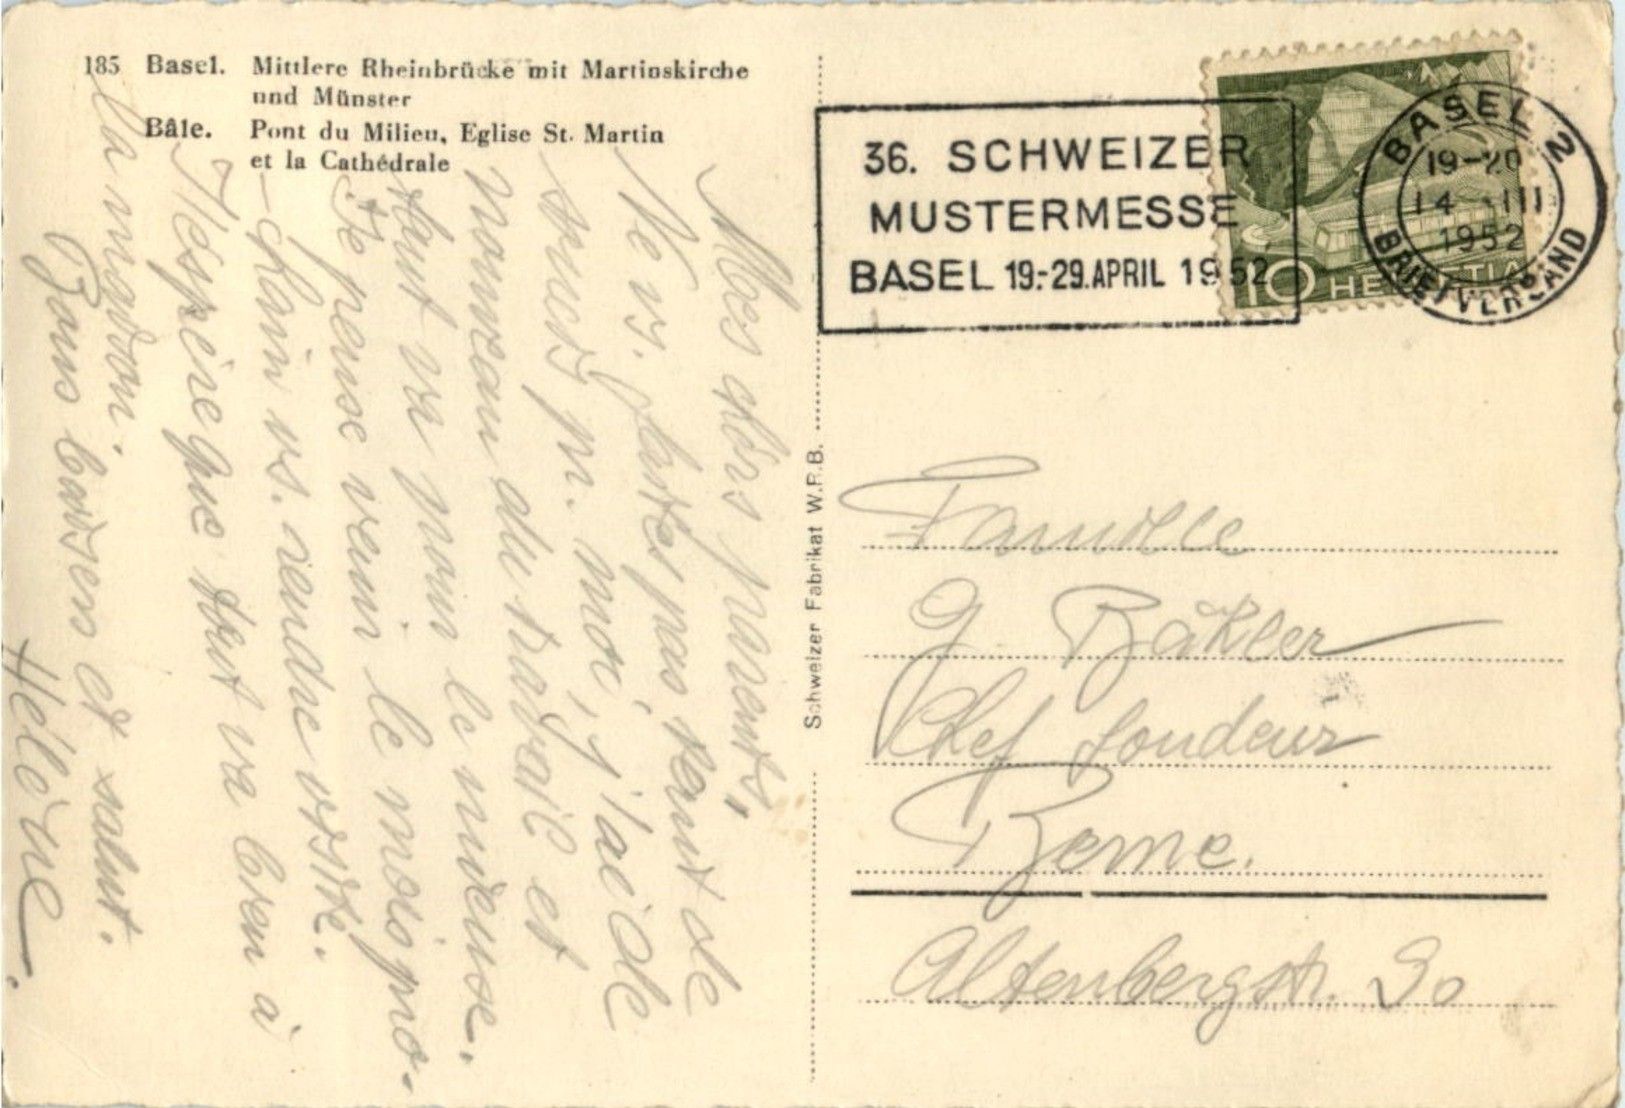 185 Basel. Mittlere Rheinbrücke mit Martinskirche
und Münster
Bâle. Pont du Milieu, Eglise St. Martin
et la Cathédrale
Mes chers parents,
Ne vs. faites pas tant de
souci p. moi, j'ai de
nouveau du travail et
tout va pour le mieux.
Je pense venir le mois pro-
-chain vs. rendre visite.
J'espère que tout va bien à
la maison.
Bons baisers et salut.
Hélène.
Schweizer Fabrikat W.P.B.
36. SCHWEIZER
MUSTERMESSE
BASEL 19.-29. APRIL 1952
10 HELVETIA
BASEL 2
19-20
14 III
1952
BRIEFVERSAND
Famille
G. Bähler
Chef fondeur
Berne.
Altenbergstr. 30